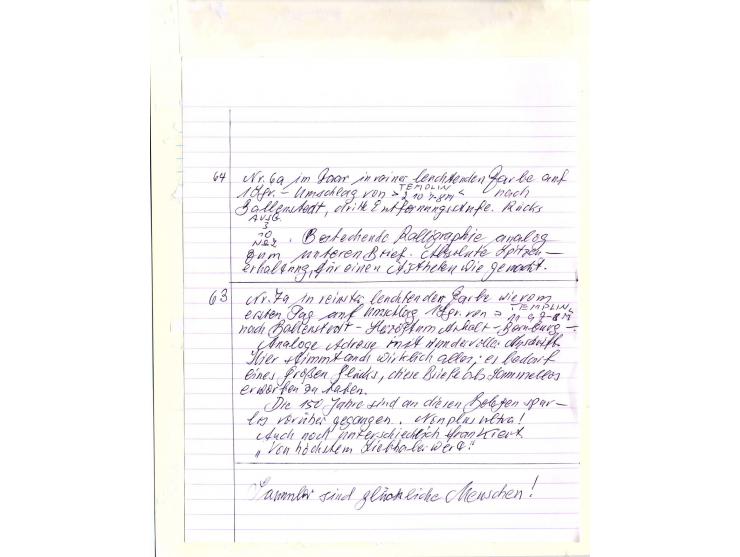 64 Nr. 6a im Paar in reiner leuchtenden Farbe auf
1 Sgr. - Umschlag von > TEMPLIN 2 10 7-8M < nach
Ballenstedt, dritte Entfernungsstufe. Rücks
AUSG.
3
10
No 2. Bestechende Kalligraphie analog
zum unteren Brief. Absolute Spitzen-
erhaltung, für einen Ästheten wie gemacht.
63 Nr. 7a in reinster leuchtenden Farbe wie vom
ersten Tag auf Umschlag 1 Sgr. von > TEMPLIN 11 9 7-8 M
nach Ballenstedt - Herzogtum Anhalt - Bernburg -.
Analoge Adresse mit wundervoller Ausdruck.
Hier stimmt auch wirklich alles; es bedarf
eines großen Glücks, diese Briefe als Sammellos
erworben zu haben.
Die 150 Jahre sind an diesen Belegen spur-
los vorüber gegangen. Nonplusultra!
Auch noch unterschiedlich frankiert.
"Von höchstem Liebhaberwert."
Sammler sind glückliche Menschen!